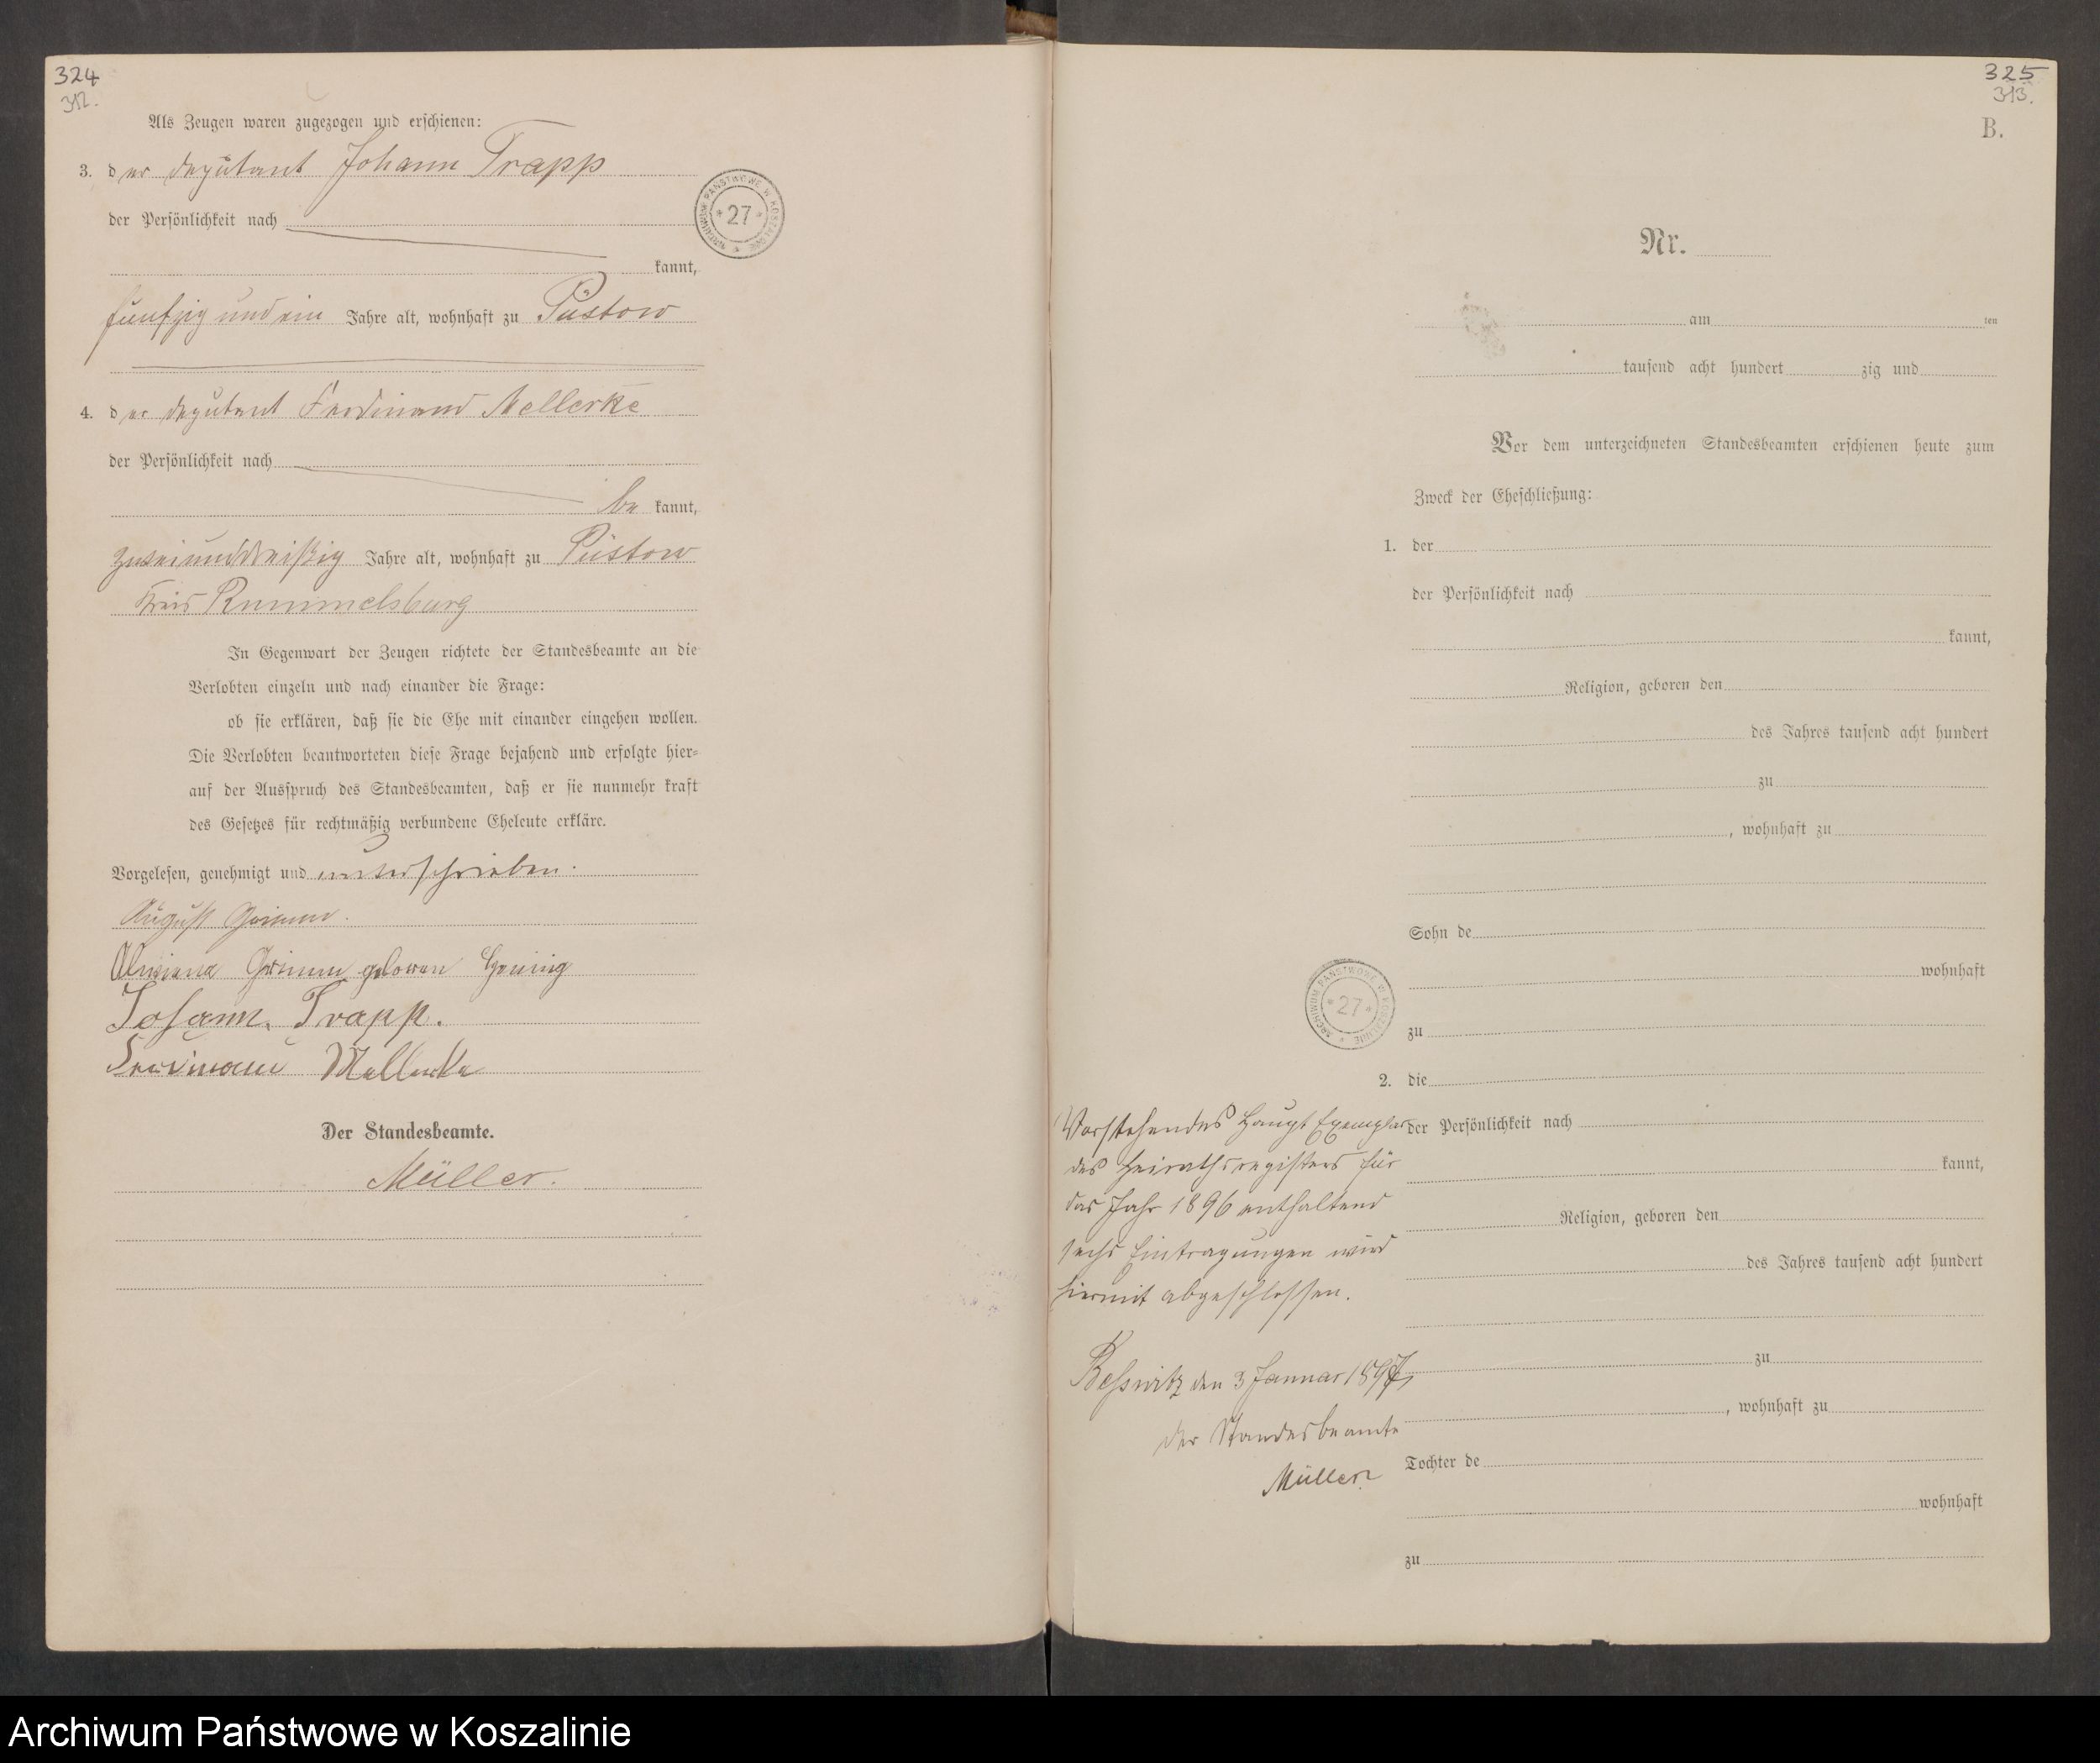 324
312.
Als Zeugen waren zugezogen und erschienen:
3. der Deputant Johann Trapp
der Persönlichkeit nach
kannt,
fünfzig und ein Jahre alt, wohnhaft zu Püstow
4. der Deputant Ferdinand Mellerke
der Persönlichkeit nach
be kannt,
zweiunddreißig Jahre alt, wohnhaft zu Püstow
Kreis Rummelsburg
In Gegenwart der Zeugen richtete der Standesbeamte an die
Verlobten einzeln und nach einander die Frage:
ob sie erklären, daß sie die Ehe mit einander eingehen wollen.
Die Verlobten beantworteten diese Frage bejahend und erfolgte hier-
auf der Ausspruch des Standesbeamten, daß er sie nunmehr kraft
des Gesetzes für rechtmäßig verbundene Eheleute erkläre.
Vorgelesen, genehmigt und unterschrieben.
August Grimm.
Grimm geboren
Johann Trapp.
Ferdinand Mellerke
Der Standesbeamte.
Müller.
ARCHIWUM PAŃSTWOWE W KOSZALINIE
* 27 *
325
313.
B.
Nr.
am ten
tausend acht hundert zig und
Vor dem unterzeichneten Standesbeamten erschienen heute zum
Zweck der Eheschließung:
1. der
der Persönlichkeit nach
kannt,
Religion, geboren den
des Jahres tausend acht hundert
zu
, wohnhaft zu
Sohn de
wohnhaft
zu
2. die
der Persönlichkeit nach
kannt,
Religion, geboren den
des Jahres tausend acht hundert
zu
, wohnhaft zu
Tochter de
wohnhaft
zu
ARCHIWUM PAŃSTWOWE W KOSZALINIE
* 27 *
Vorstehendes Haupt Exemplar
des Heirathsregisters für
das Jahr 1896 enthaltend
sechs Eintragungen wird
hiermit abgeschlossen.
Beßwitz den 3 Januar 1897
Der Standesbeamte
Müller
Archiwum Państwowe w Koszalinie